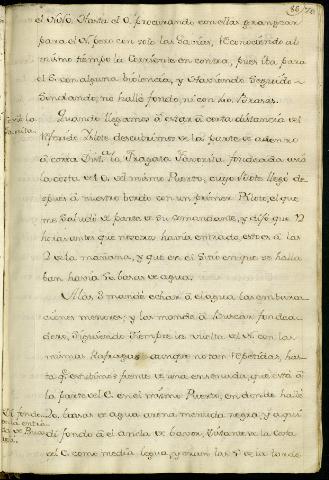 el viento. Hasta el O. procurando con ellas granjear
para el N. pero con solo las Gavias, reconociendo al
mismo tiempo la corriente en contra, pues iba para
el E. con alguna violencia, y haviendo seguido
sondando, no hallé fondo, ni con 100. Brazas.
Quando llegamos á estár á corta distancia del
referido Islote descubrimos de la parte de adentro
á corta Dist.ª la Fragata Favorita fondeada
la costa del O. del mismo Puerto, cuyo Vote llegó
pues á nuestro bordo con un primer Piloto, el que
me Saludó de parte de su Comandante, y dijo que 12
horas antes que nosotros havia entrado, esto es á las
2 de la mañana, y que en el Sitio en que se halla
ban havia brazas de agua.
A las mandé echar á el agua las embarca
ciones menores, y las mandé á buscar fondea
dero, siguiendo siempre la vuelta del N. con las
mismas Rafagas aunque no tan repetidas, has
ta q.e estubimos frente de una ensenada, que está á
la parte del E. en el mismo Puerto, en donde hallé
brazas de agua arena menuda negra, y aqui
di fondo á el ancla de babor, distante de la costa
del E. como media legua, y eran las de la tarde